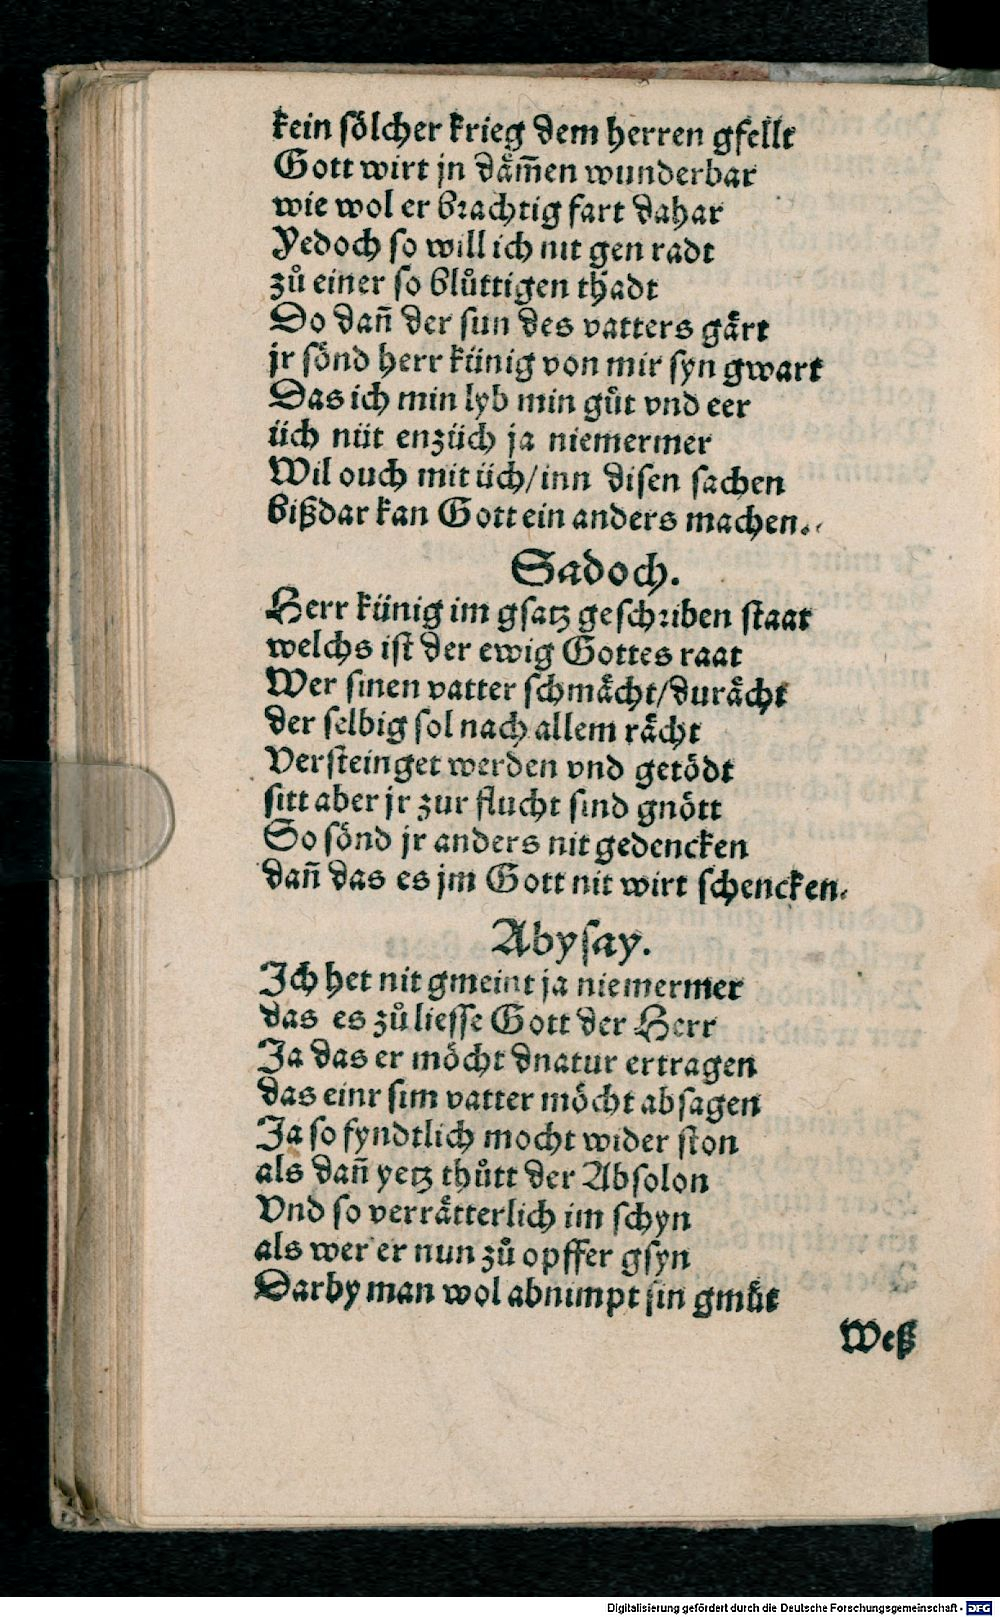 kein sölcher krieg dem herren gfellt
Gott wirt jn dåm̃en wunderbar
wie wol er brachtig fart dahar
Yedoch so will ich nit gen radt
zů einer so blůttigen thadt
Do dañ der sun des vatters gårt
jr sönd herr künig von mir syn gwart
Das ich min lyb min gůt vnd eer
üch nüt enzüch ja niemermer
Wil ouch mit üch/inn disen sachen
bißdar kan Gott ein anders machen.
Sadoch.
Herr künig im gsatz geschriben staat
welchs ist der ewig Gottes raat
Wer sinen vatter schmåcht/duråcht
der selbig sol nach allem råcht
Versteinget werden vnd getödt
sitt aber jr zur flucht sind gnött
So sönd jr anders nit gedencken
dañ das es jm Gott nit wirt schencken.
Abysay.
Ich het nit gmeint ja niemermer
das es zů liesse Gott der Herr
Ja das er möcht dnatur ertragen
das einr sim vatter möcht absagen
Ja so fyndtlich mocht wider ston
als dañ yetz thůtt der Absolon
Vnd so verråtterlich im schyn
als wer er nun zů opffer gsyn
Darby man wol abnimpt sin gmüt
Weß
Digitalisierung gefördert durch die Deutsche Forschungsgemeinschaft - DFG